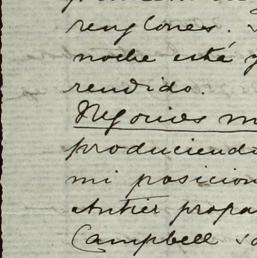 renglones.
noche está y
rendido.
Negocios m
produciend
mi posicion
Antier propa
Campbell so